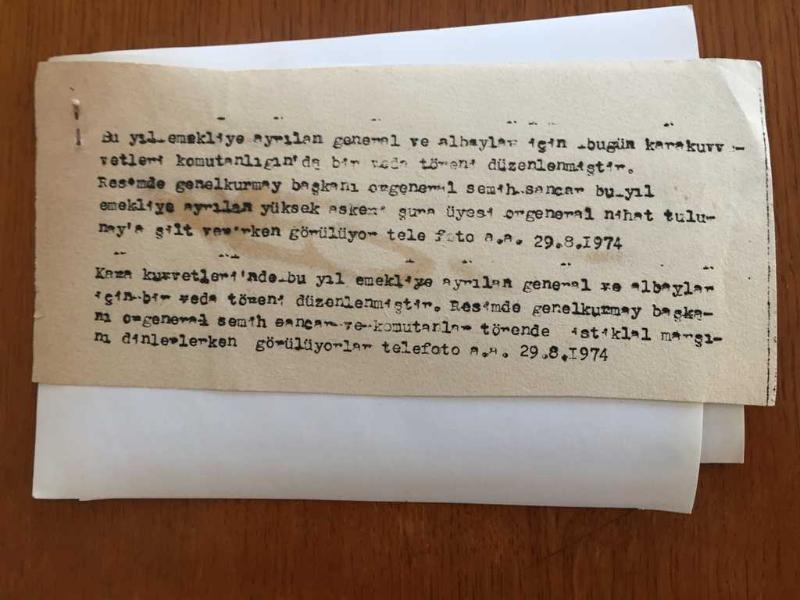 Bu yıl emekliye ayrılan general ve albaylar için bugün karakuvv
vetleri komutanlıgın'da bir veda töreni düzenlenmiştir.
Resimde genelkurmay başkanı orgeneral semih sancar bu yıl
emekliye ayrılan yüksek askeri şura üyesi orgeneral nihat tulu-
nay'a şilt verirken görülüyor tele foto a.a. 29.8.1974
Kara kuvvetleri'nde bu yıl emekliye ayrılan general ve albaylar
için bir veda töreni düzenlenmiştir. Resimde genelkurmay başka-
nı orgeneral semih sancar ve komutanlar törende istiklal marşı-
nı dinlerlerken görülüyorlar telefoto a.a. 29.8.1974